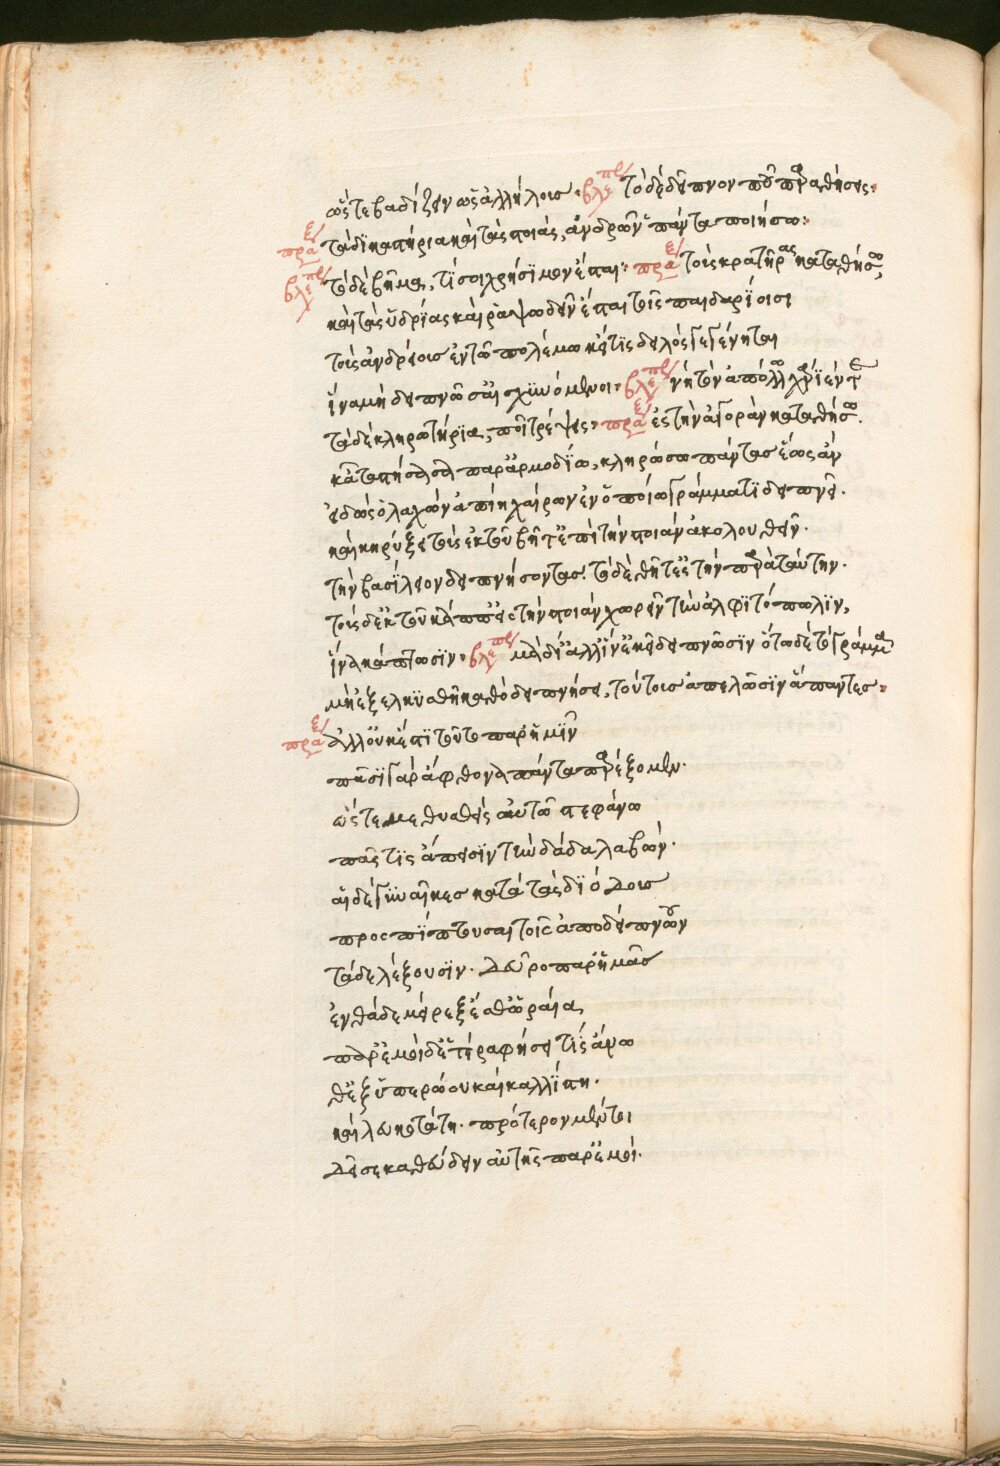 ὥστε βαδίζειν ὡς ἀλλήλους· βλέπ τὸ δὲ δεῖπνον ποῦ παραθήσεις:
πραξ τὰ δικαστήρια καὶ τὰς στοιὰς, ἀνδρῶν πάντα ποιήσω:
βλέπ τὸ δὲ βῆμα, τί σοι χρήσιμον ἔσται: πραξ τοὺς κρατῆρας καταθήσω,
καὶ τὰς ὑδρίας καὶ ῥαψωδεῖν ἔσται τοῖς παιδαρίοισι
τοὺς ἀνδρείους ἐν τῶ πολέμω κεἴτις δειλὸς γεγένηται
ἵνα μὴ δειπνῶσ' αἰσχυνόμενοι: βλέπ νὴ τὸν ἀπόλλω χάριέν γε
τὰ δὲ κληρωτήρια, ποῖ τρέψεις: πραξ ἐς τὴν ἀγορὰν καταθήσω.
κᾶτα στήσασα παρ' ἁρμοδίω, κληρώσω πάντας ἕως ἂν
εἰδὼς ὁ λαχὼν ἀπίη χαίρων ἐν ὁποίω γράμματι δειπνεῖ.
καὶ κηρύξει τοὺς ἐκ τοῦ βῆτ' ἐπὶ τὴν στοιὰν ἀκολουθεῖν.
τὴν βασίλειον δειπνήσοντας. τὸ δὲ θῆτ' ἐς τὴν παρὰ ταύτην.
τοὺς δ' ἐκ τοῦ κάππ' ἐς τὴν στοιὰν χωρεῖν τὴν ἀλφιτόπωλιν,
ἵνα κάπτωσιν· βλέπ μὰ δί' ἀλλ' ἵν' ἐκεῖ δειπνῶσιν ὅτω δὲ τὸ γράμμα
μὴ ἐξελκυσθῆ καθὸ δειπνήσει, τούτους ἀπελῶσιν ἅπαντες:
πραξ ἀλλ' οὐκ ἔστι τοῦτο παρ' ἡμῖν
πᾶσι γὰρ ἄφθονα πάντα παρέξομεν.
ὥστε μεθυσθεὶς αὐτῶ στεφάνω
πᾶς τις ἄπεισιν τὴν δᾶδα λαβών.
αἱ δὲ γυναῖκες κατὰ τὰς διόδους
προσπίπτουσαι τοῖς ἀπὸ δείπνων
τάδε λέξουσιν. δεῦρο παρ' ἡμᾶς
ἐνθάδε μεῖρεξ ἔσθ' ὡραία,
παρ' ἐμοὶ δ' ἑτέρα φήσει τίς ἄνω
θ' ἐξ ὑπερώου καὶ καλλίστη.
καὶ λευκοτάτη. πρότερον μέντοι
δεῖ σε καθεύδειν αὐτῆς παρ' ἐμοί.